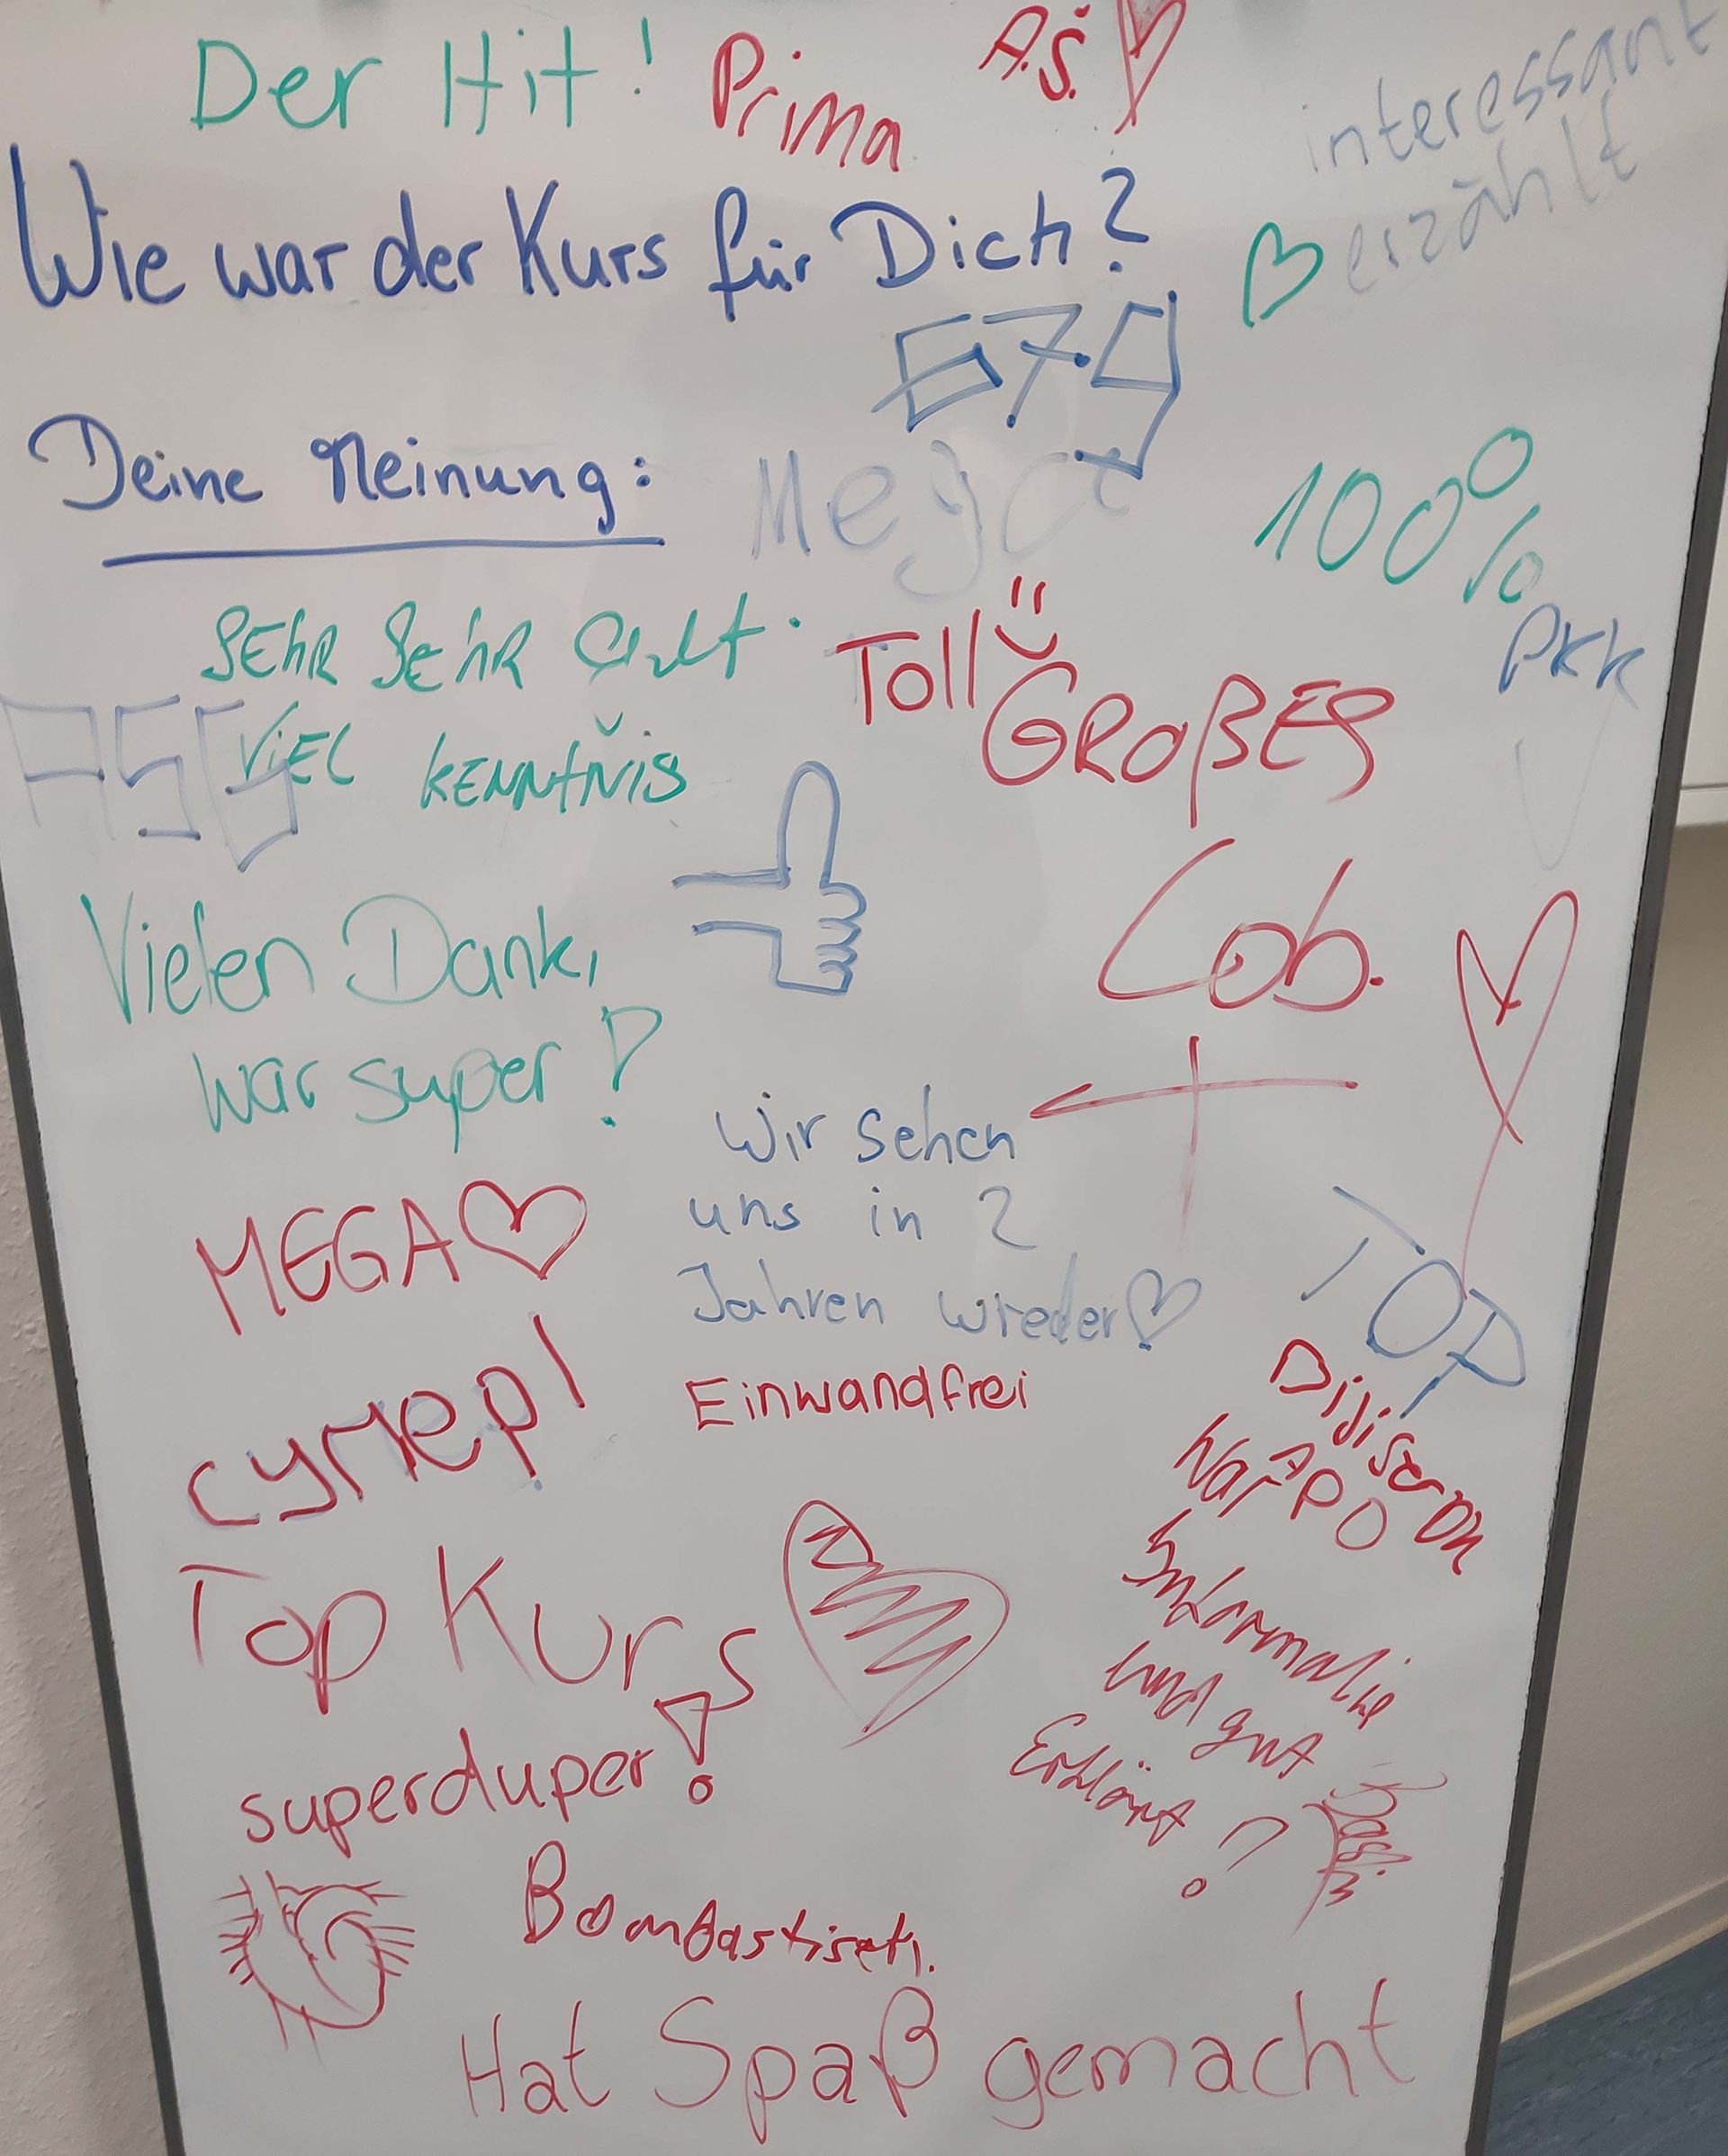 Der Hit! Prima A.Š.
interessant
erzählt
Wie war der Kurs für Dich?
67.9
Deine Meinung:
Mega
100%
SEHR SEHR Gut.
Toll
PKK
VIEL KENNTŇIS
GROßES
Lob.
Vielen Dank,
war super!
Wir sehen
uns in 2
Jahren wieder
MEGA
TOP
супер!
Einwandfrei
war
Top Kurs
und gut
Erklärt
superduper!
Bombastisch.
Hat Spaß gemacht